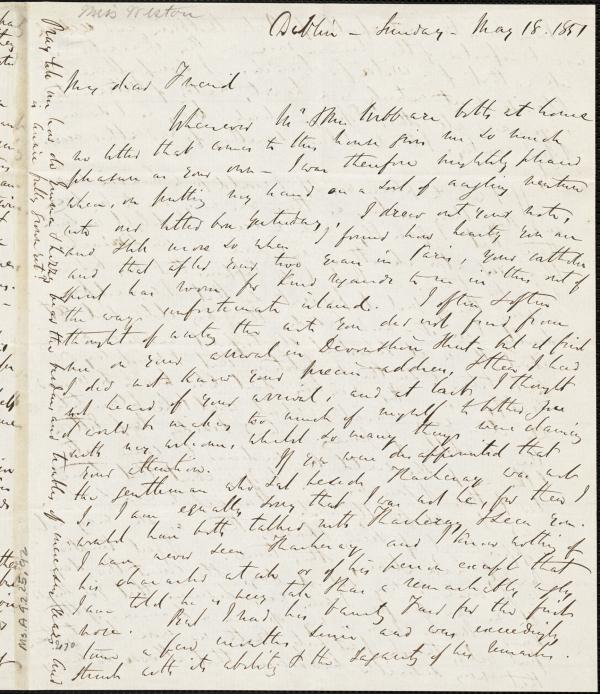 Miss Weston
Dublin - Sunday - May 18. 1851
My dear Friend
Whenever Mr & Mrs Webb are both at home
no letter that comes to this house gives me so much
pleasure as your own - I was therefore mightily pleased
when, on putting my hand on a sort of angling venture
into our letter box yesterday, I drew out your note,
and still more so when I found how hearty you are
and that after your two years in Paris, your catholic
spirit has room for kind regards to me in this out of
the way unfortunate island. I often & often
thought of writing this but you did not find from
me on your arrival in Devonshire Street - but at first
I did not know your precise address, & then I had
not heard of your arrival; and at last I thought
it would be making too much of myself to bother you
with my welcome, whilst so many things were claiming
your attention. If you were disappointed that
the gentleman who sat beside Thackeray was not
I, I am equally sorry that I was not he, for then I
would have both talked with Thackeray & seen you.
I have never seen Thackeray and I know nothing of
his character at all or of his person except that
I am told he is very tall & has a remarkably ugly
nose. But I read his Vanity Fair for the first
time a few months since and was exceedingly
struck with its ability & the sagacity of his remarks.
Pray tell me how do Emma & Lizzie bear the
is Lizzie fully grown yet?
Ms.A.9.2.25.92